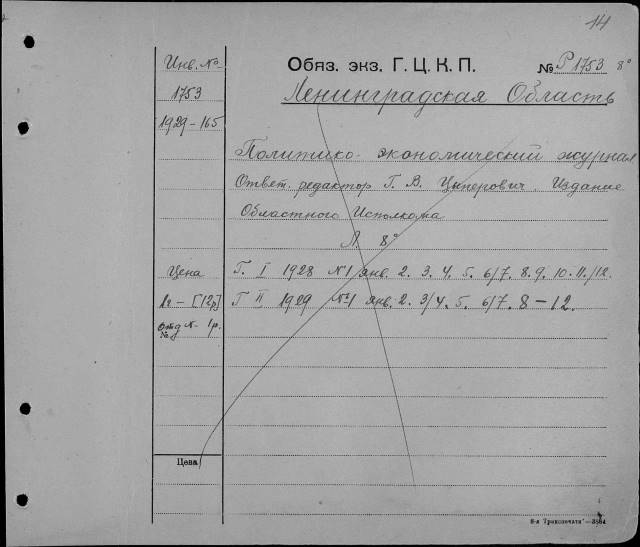 14
Инв. №
Обяз. экз. Г. Ц. К. П.
№ Р 1753 8°
1753
Ленинградская Область
1929-165
Политико-экономический журнал
Ответ. редактор Г. В. Циперович. Издание
Областного Исполкома
Л. 8°
Цена
Г. I 1928 №1 янв. 2. 3. 4. 5. 6/7. 8. 9. 10. 11./12.
1г - [12р]
Г II 1929 №1 янв. 2. 3/4. 5. 6/7. 8-12.
отд № - 1р.
№
Цена
8-я "Транспечати"